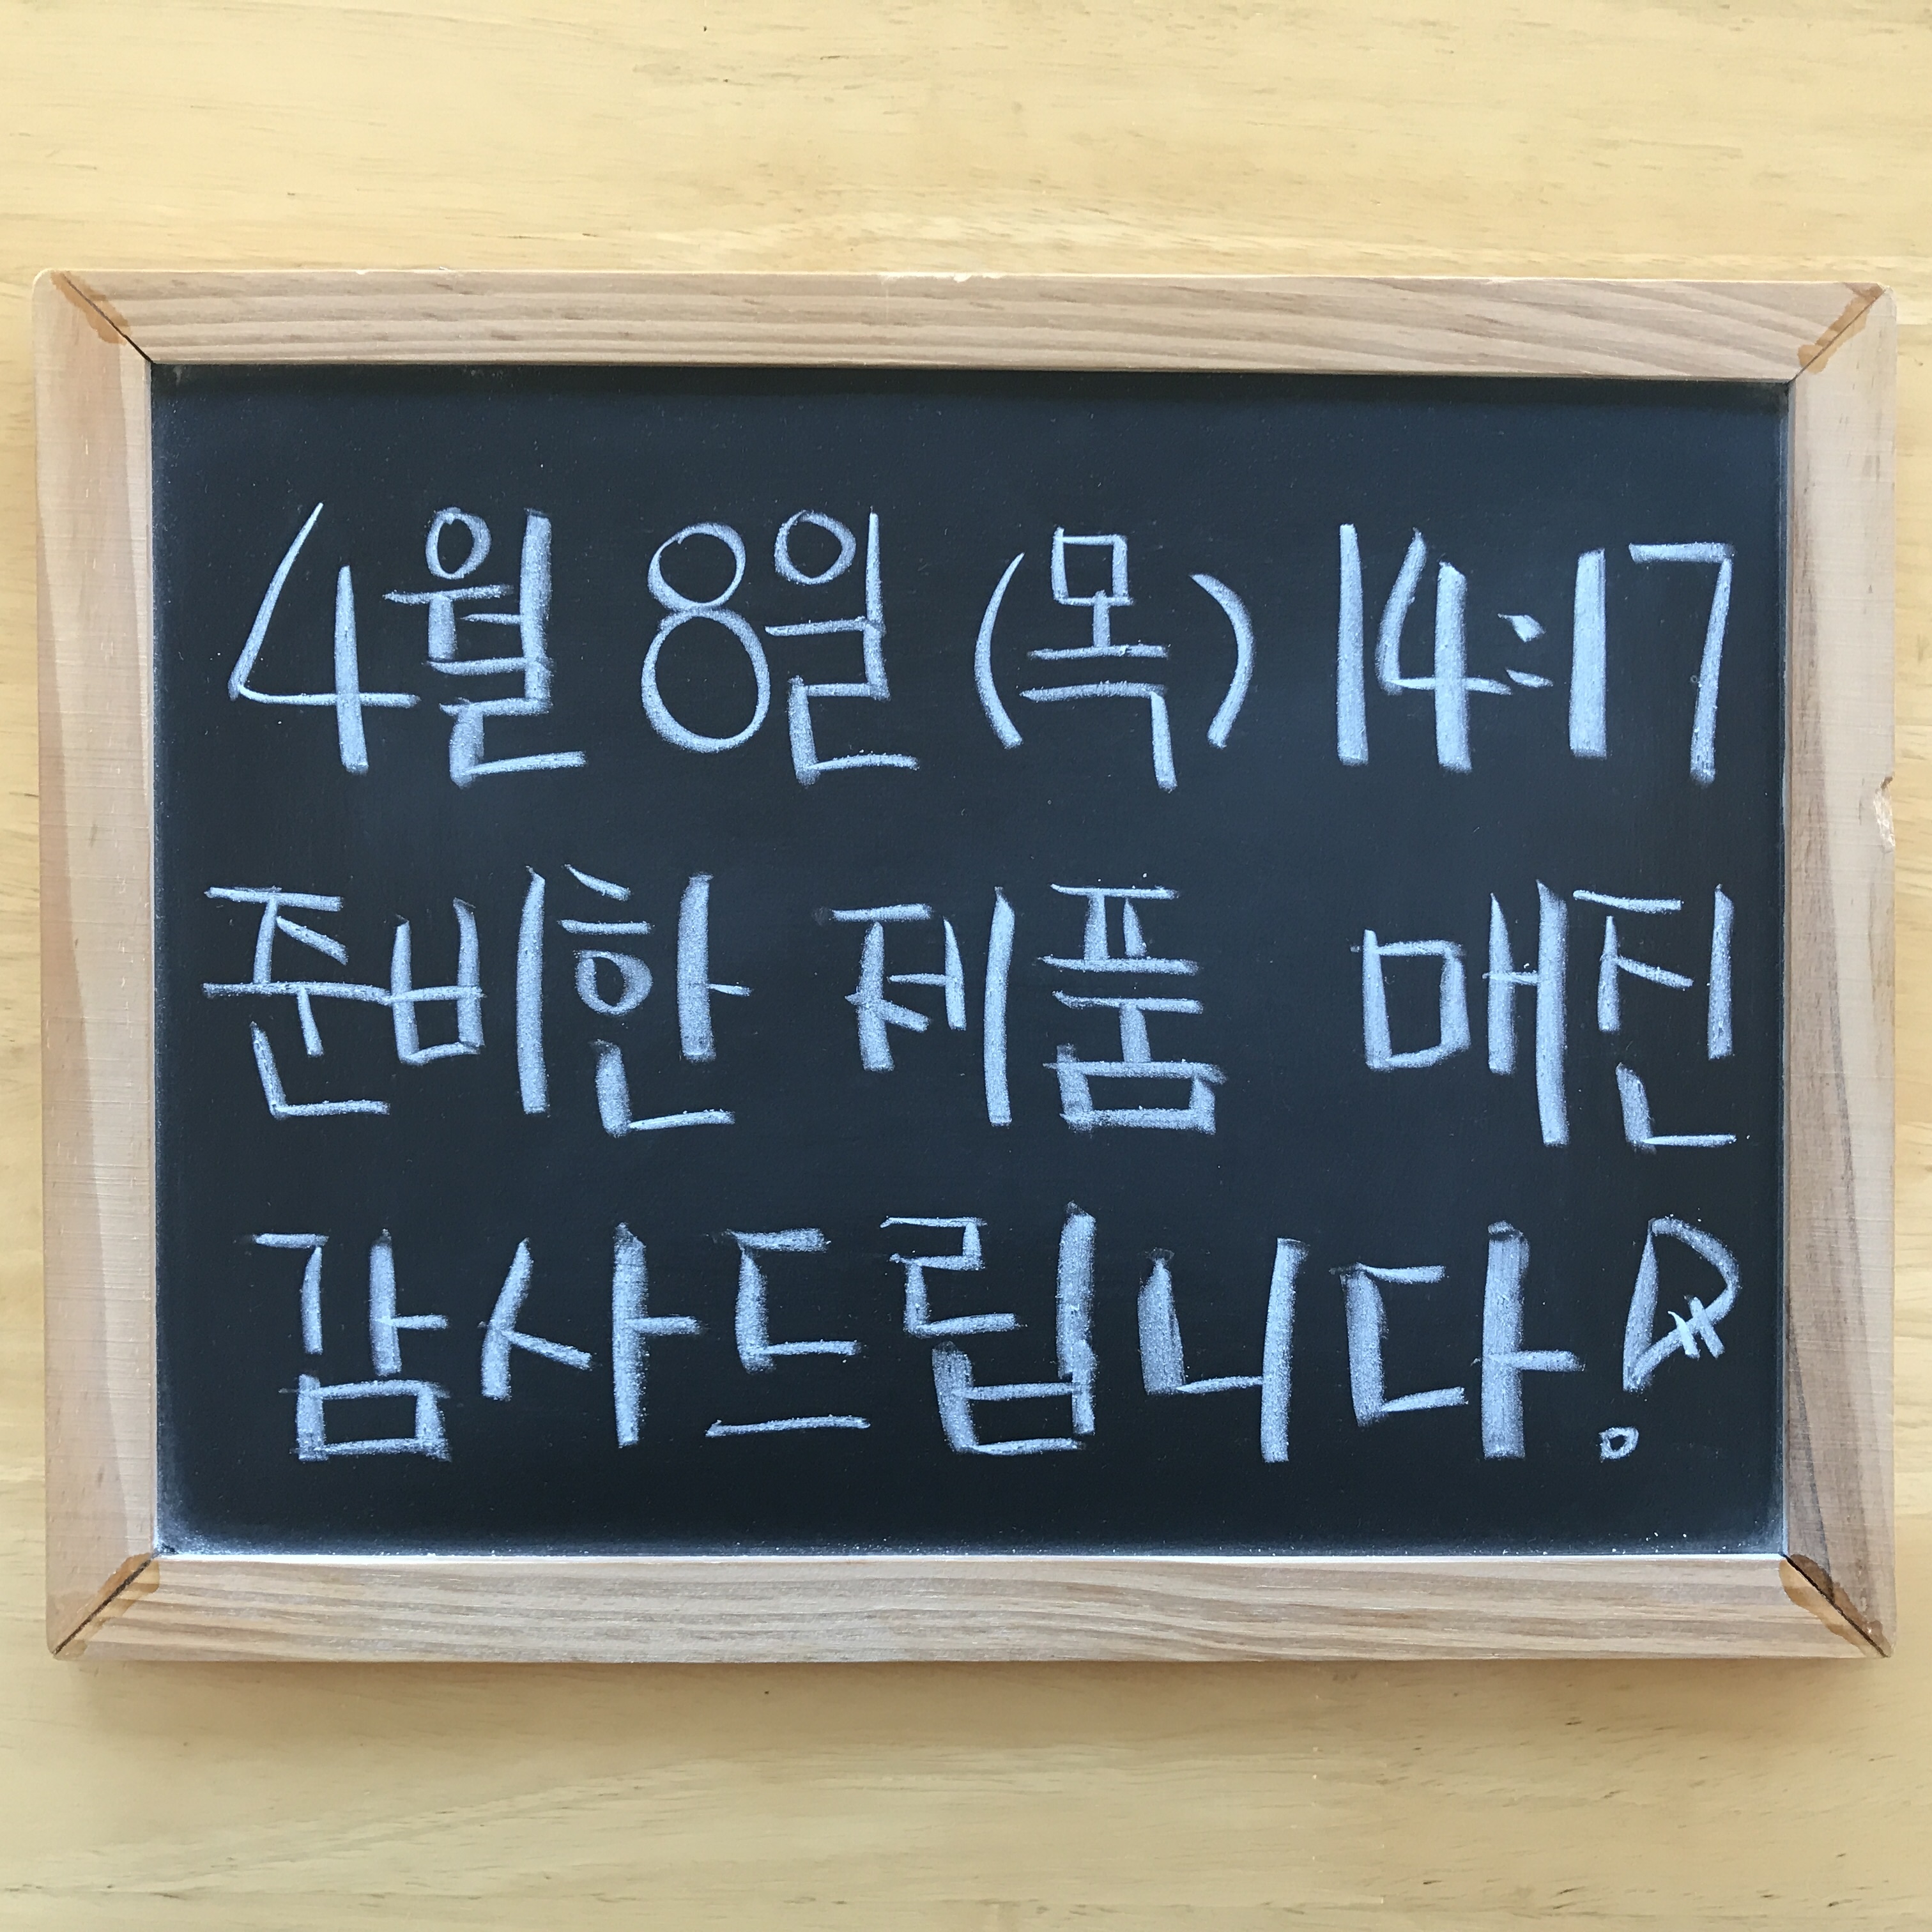 4월 8일 (목) 14:17
준비한 제품 매진
감사드립니다!